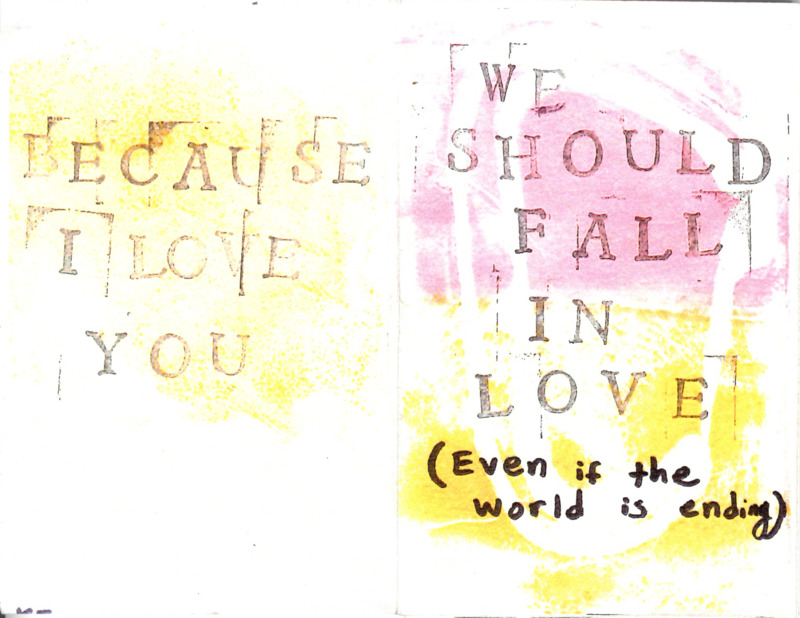 BECAUSE
I LOVE
YOU
WE
SHOULD
FALL
IN
LOVE
(Even if the
world is ending)